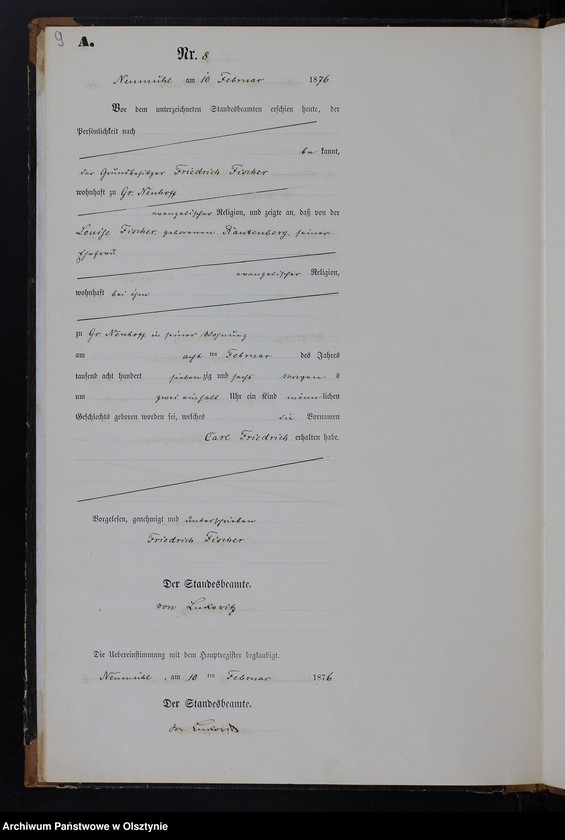 9
A.
Nr. 8
Neumühl am 10 Februar 1876
Vor dem unterzeichneten Standesbeamten erschien heute, der
Persönlichkeit nach
be kannt,
der Grundbesitzer Friedrich Fischer
wohnhaft zu Gr. Neuhoff
evangelischer Religion, und zeigte an, daß von der
Louise Fischer, geborenen Rautenberg, seiner
Ehefrau,
evangelischer Religion,
wohnhaft bei ihm
zu Gr. Neuhoff in seiner Wohnung
am acht ten Februar des Jahres
tausend acht hundert sieben zig und sechs Morgen s
um zwei einhalb Uhr ein Kind männ lichen
Geschlechts geboren worden sei, welches die Vornamen
Carl Friedrich erhalten habe.
Vorgelesen, genehmigt und unterschrieben
Friedrich Fischer
Der Standesbeamte.
von
Die Uebereinstimmung mit dem Hauptregister beglaubigt.
Neumühl, am 10 ten Februar 1876
Der Standesbeamte.
von
Archiwum Państwowe w Olsztynie